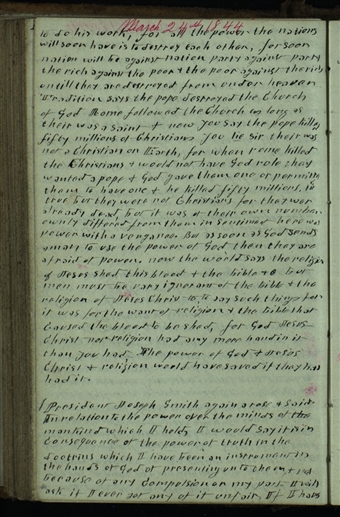 March 24th 1844
to do his work, for all the power the nations
will soon have is to destroy each other, for soon
nation will be against nation party against party
the rich against the poor & the poor against the rich
untill they are destroyed from under heaven
Tradition says the pope destroyed the Church
of God Rome followed the Church as long as
their was a saint & now you say the pope killed
fifty millions of Christians. you lie sir their was
not a Christian on Earth, for when rome killed
the Christians & would not have God rule they
wanted a pope & God gave them one or permitted
them to have one & he killed fifty millions, tis
true but they were not Christians for they were
already dead, but it was of their own number
ownly differed from them in sentiment here was
power with a vengance But as soon as God sends
a man to use the power of God then they are
afraid of power, now the world says the religion
of Jesus shed this blood & the bible &c but
men must be vary ignorant of the bible & the
religion of Jesus Christ to say such things for
it was for the want of religion & the bible that
Caused the blood to be shed, for God Jesus
Christ nor religion had any more hand in it
than you had. The power of God & Jesus
Christ & religion would have saved if they had
had it.
President Joseph Smith again arose & said
In relation to the power over the minds of
mankind which I hold, I would say it is in
Consequence of the power of truth in the
doctrins which I have been an instrument in
the hands of God of presenting unto them & not
because of any Compulsion on my part. I will
ask if I ever got any of it unfair, If I have